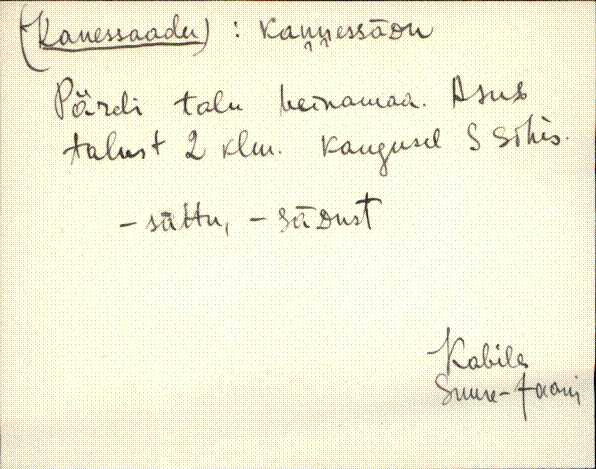 (Kanessaadu) : kannessādu
Pärdi talu heinamaa. Asub
talust 2 klm. kaugusel S sihis.
- sāttu, - sādust
Kabila
Suure-Jaani